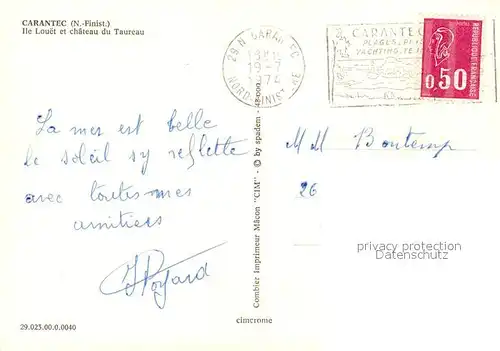 CARANTEC (N.-Finist.)
Ile Louët et château du Taureau
29 N CARANTEC
1974
NORD FINISTERE
CARANTEC
PLAGES, PI
YACHTING, TE
REPUBLIQUE FRANÇAISE
0,50
La mer est belle
le soleil sy reflette
avec toutes mes
amitiers
M M Bontemp
26
privacy protection
Combier Imprimeur Mâcon "CIM" - © by spadem -
29.023.00.0.0040
cimcrome